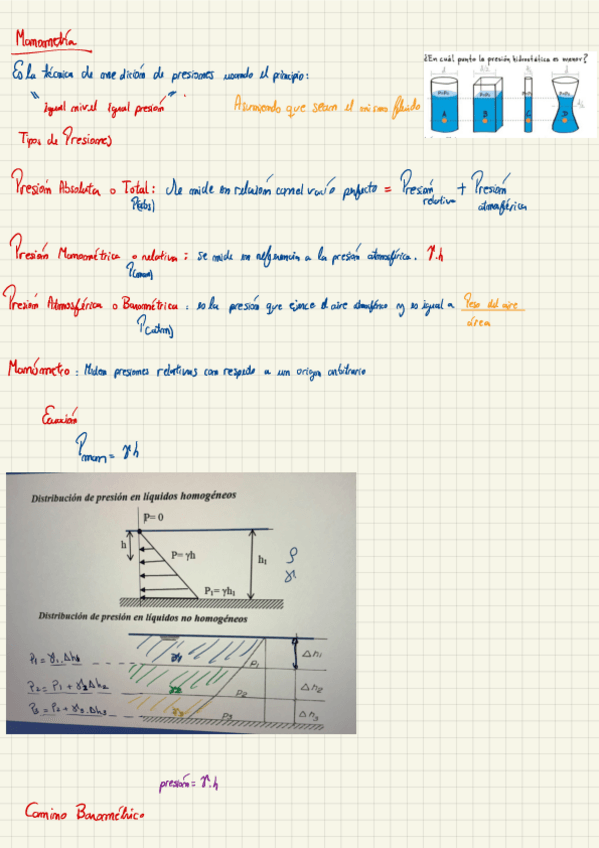 Manometría
¿En cuál punto la presión hidrostática es menor?
Es la técnica de medición de presiones usando el principio:
"igual nivel igual presión"
Asumiendo que sean el mismo fluido
A B C D
Tipos de Presiones
Presión Absoluta o Total: se mide en relación con el vacío perfecto = Presión relativa + Presión atmosférica
P(abs)
Presión Manométrica o relativa: se mide en referencia a la presión atmosférica. γ.h
P(man)
Presión Atmosférica o Barométrica: es la presión que ejerce el aire atmosférico y es igual a Peso del aire
área
P(atm)
Manómetro: Miden presiones relativas con respecto a un origen arbitrario
Ecuación
Pman = γh
Distribución de presión en líquidos homogéneos
P= 0
h
P= γh
h₁
ρ
γ
P₁= γh₁
Distribución de presión en líquidos no homogéneos
P₁ = γ₁.Δh₁
γ₁
P₁
Δh₁
P₂ = P₁ + γ₂Δh₂
γ₂
P₂
Δh₂
P₃ = P₂ + γ₃.Δh₃
γ₃
P₃
Δh₃
presión = γ.h
Camino Barométrico